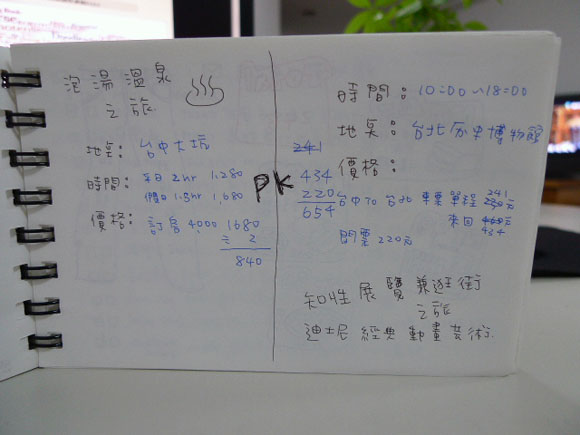 泡湯溫泉
之旅
地點: 台中大坑
時間: 平日 2hr 1,280
假日 1.5hr 1,680
價格: 訂房 4,000 1680
÷ 2
840
PK
時間: 10:00~18:00
地點: 台北歷史博物館
價格:
241
434
220
654
台中to台北 車票單程 241
230元
來回 460元
434
門票 220元
知性展覽兼逛街
之旅
迪士尼經典動畫藝術